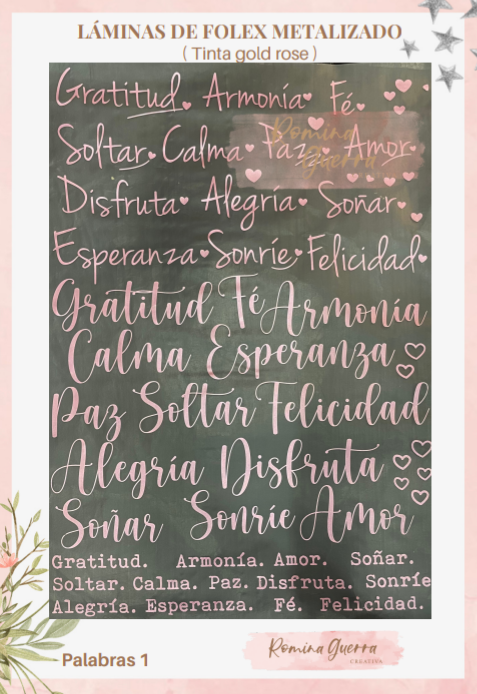 LÁMINAS DE FOLEX METALIZADO
( Tinta gold rose )
Gratitud Armonía Fé
Soltar Calma Paz Amor
Romina
Guerra
Disfruta Alegría Soñar
Esperanza Sonríe Felicidad
Gratitud Fé Armonía
Calma Esperanza
Paz Soltar Felicidad
Alegría Disfruta
Soñar Sonríe Amor
Gratitud. Armonía. Amor. Soñar.
Soltar. Calma. Paz. Disfruta. Sonríe
Alegría. Esperanza. Fé. Felicidad.
Palabras 1
Romina Guerra
CREATIVA